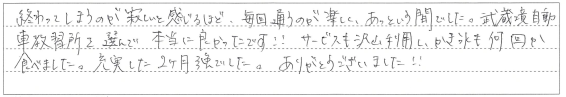 終わってしまうのが寂しいと感じるほど、毎回通うのが楽しく、あっという間でした。武蔵境自動
車教習所を選んで本当に良かったです!! サービスも沢山利用し、かき氷も何回か
食べました。充実した2ヶ月強でした。ありがとうございました!!